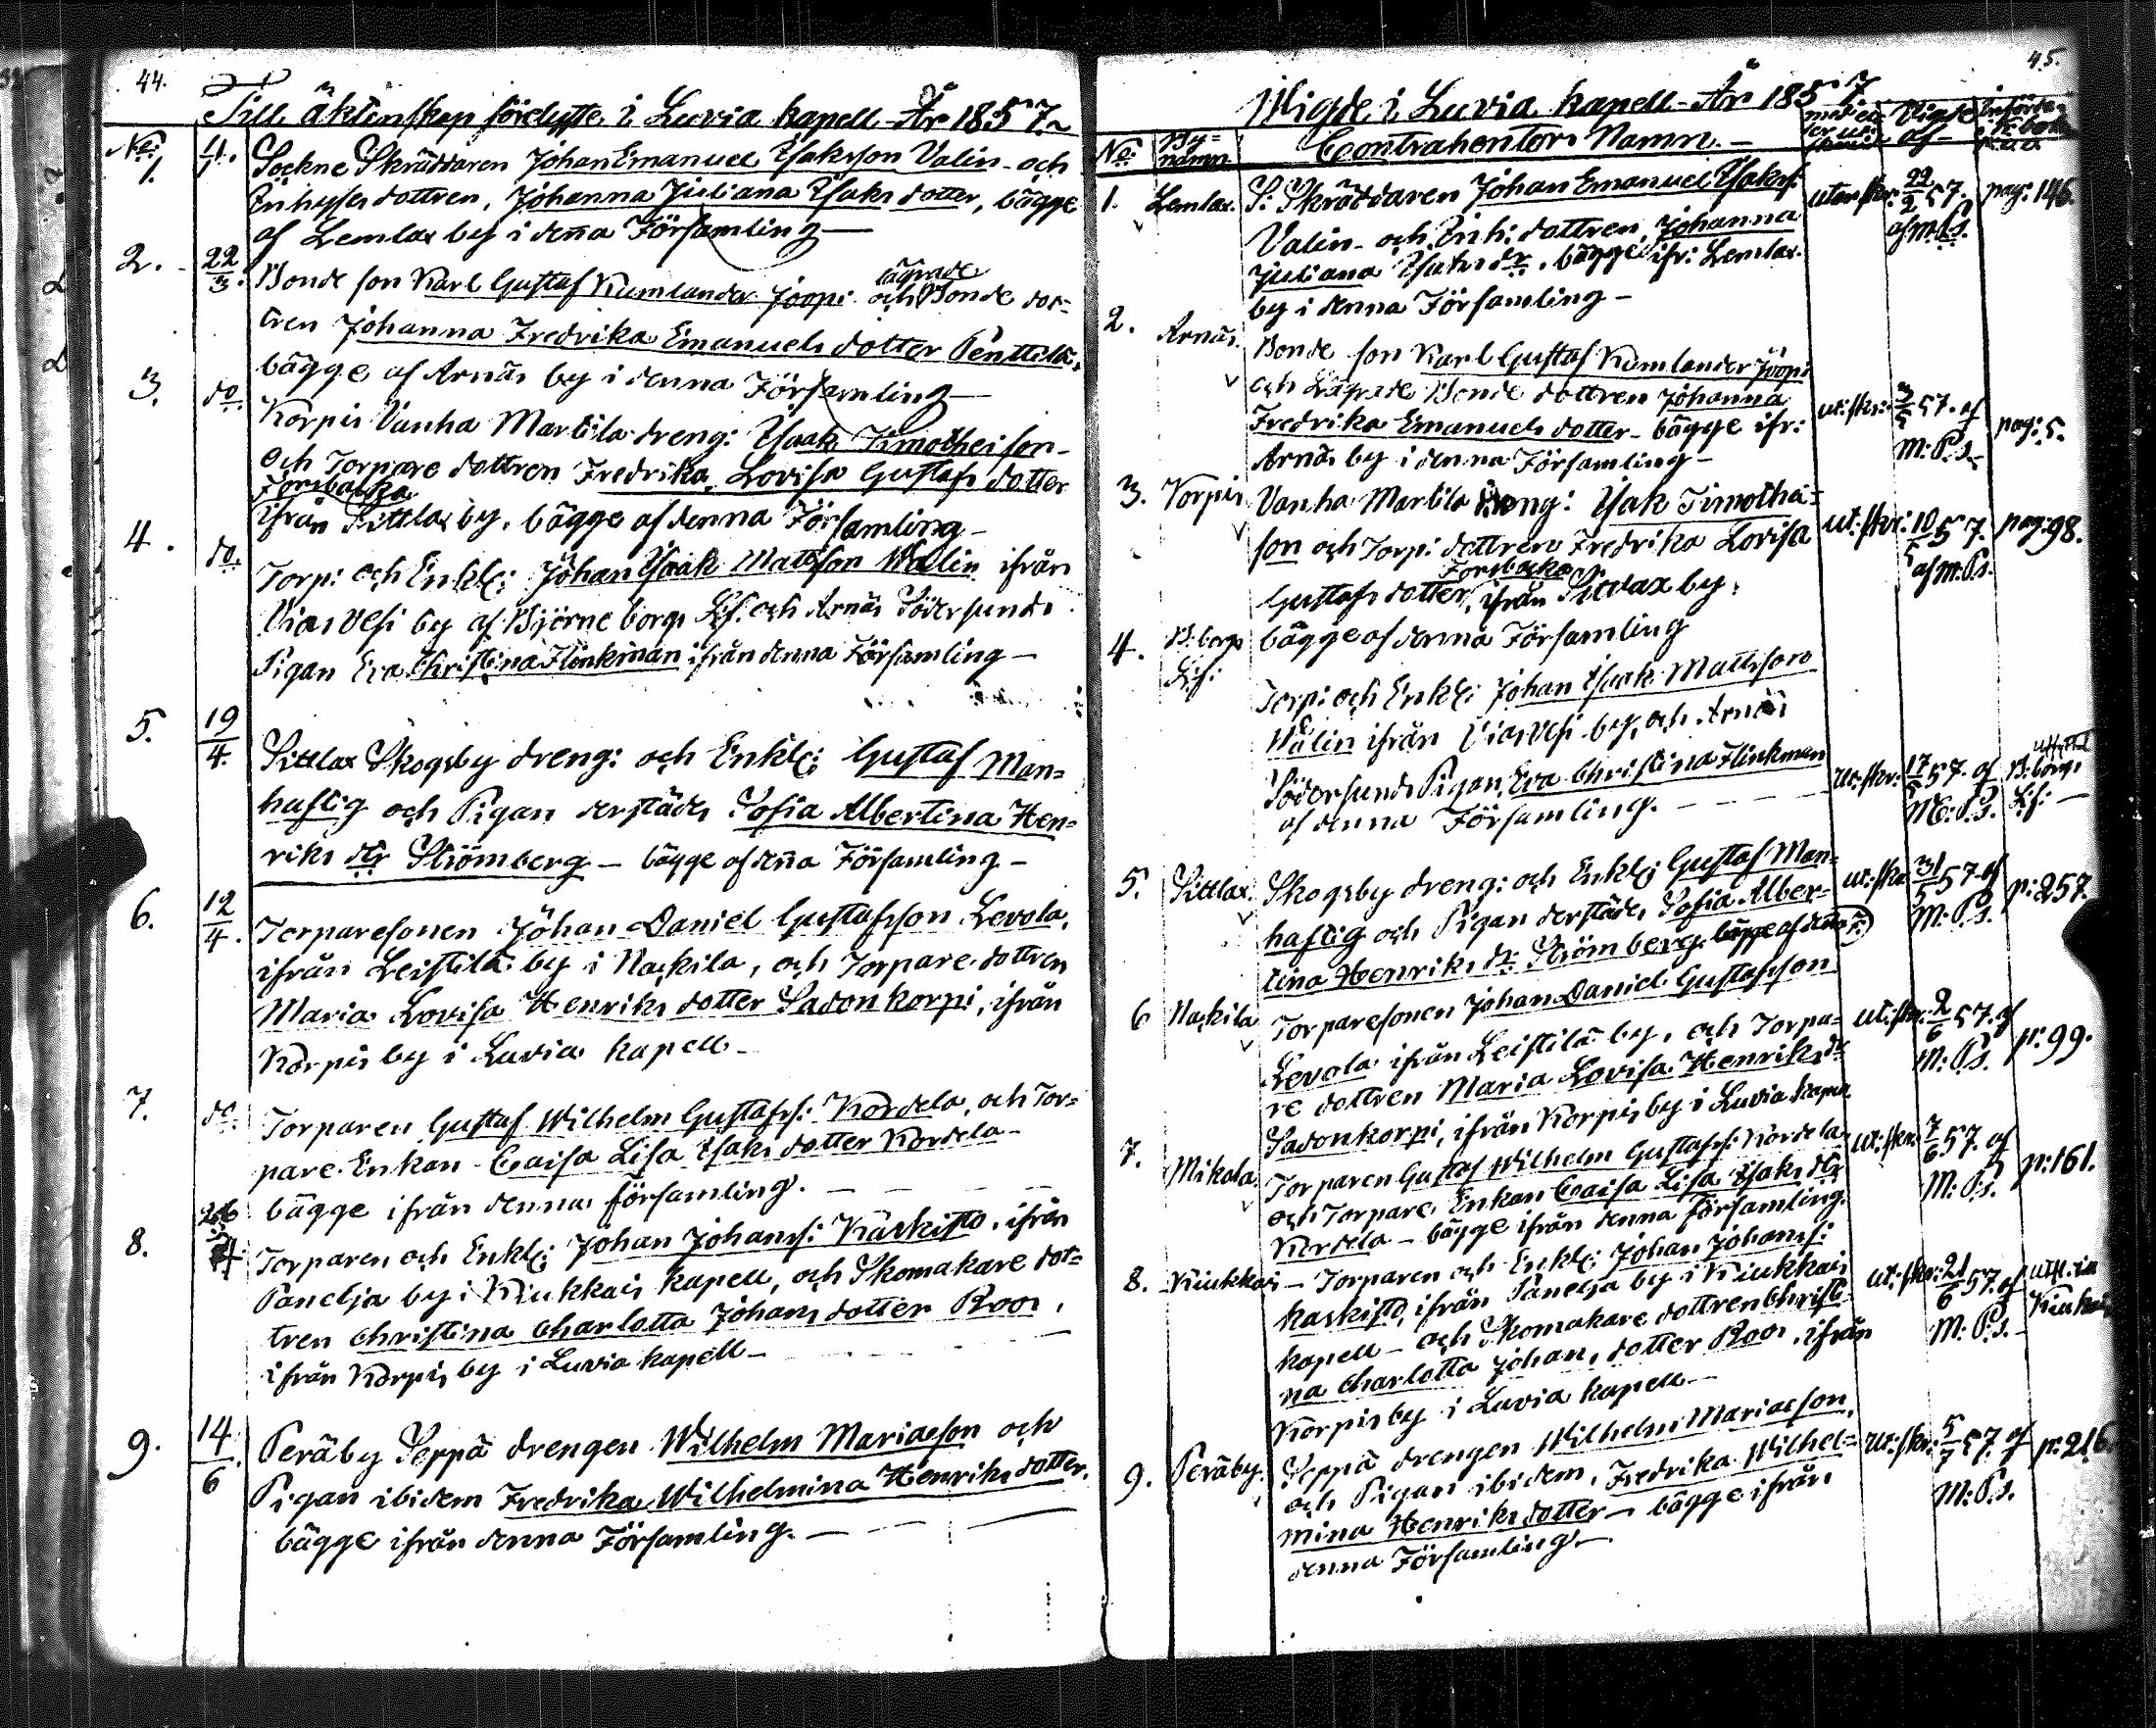 44.
Till äktenskap förelyste i Luvia kapell År 1857.
No:
1. 11/1. Sockne Skräddaren Johan Emanuel Isaksson Valin och
Inhyses dottren, Johanna Juliana Isaks dotter, bägge
af Lemlax by i denna Församling
2. 22/3. Bonde son Karl Gustaf Kumlander Joopi och Lägrade Bonde dot-
tren Johanna Fredrika Emanuels dotter Penttilä,
bägge af Arnäs by i denna Församling
3. do. Korpis Vanha Martila dreng: Isaak Timothei son
och Torpare dottren Fredrika Lovisa Gustafs dotter
Forsbacka
ifrån Pittlax by, bägge af denna Församling
4. do. Torp: och Enkl: Johan Isaak Matsson Walin ifrån
Viasvesi by af Björneborgs Lf. och Arnäs Södersunds
Pigan Eva Christina Flinkman ifrån denna Församling
5. 19/4. Pittlax Skogsby dreng: och Enkl: Gustaf Man-
haftig och Pigan derstädes Sofia Albertina Hen-
riks dr Strömberg – bägge af denna Församling –
6. 12/4. Torparesonen Johan Daniel Gustafsson Levola,
ifrån Leistilä by i Nackila, och Torpare dottren
Maria Lovisa Henriks dotter Sadonkorpi, ifrån
Korpis by i Luvia kapell
7. do. Torparen Gustaf Wilhelm Gustafss: Kordela, och Tor-
pare Enkan Caisa Lisa Isaks dotter Kordela
bägge ifrån denna församling.
8. 26 Torparen och Enkl: Johan Johanss: Kaskisto, ifrån
Panelja by i Kiukkais kapell, och Skomakare dot-
tren Christina Charlotta Johans dotter Roos,
ifrån Korpis by i Luvia kapell
9. 14/6. Peräby Seppä drengen Wilhelm Mariaeson och
Pigan ibidem Fredrika Wilhelmina Henriks dotter,
bägge ifrån denna Församling.
45.
Wigde i Luvia kapell År 1857
No: By-namn Contrahenters Namn. Vigde af
1. Lemlax. S: Skräddaren Johan Emanuel Isakss: utan skr: 22/2 57. pag: 146.
Valin och Inh: dottren, Johanna af M: Ps.
Juliana Isaks dr, bägge ifr: Lemlax
by i denna Församling –
2. Arnäs. Bonde son Karl Gustaf Kumlander Joopi
och Lägrade Bonde dottren Johanna
Fredrika Emanuels dotter bägge ifr: ut: skr: 3/5 57. af pag: 5.
Arnäs by i denna Församling – M: Ps.
3. Korpis Vanha Martila dreng: Isak Timothei-
son och Torp: dottren Fredrika Lovisa ut: skr: 10/5 57. pag: 98.
Forsbacka af M: Ps.
Gustafs dotter, ifrån Pittlax by,
bägge af denna Församling
4. B: borgs Lf: Torp: och Enkl: Johan Isaak Mattsson
Walin ifrån Viasvesi by, och Arnäs
Södersunds Pigan, Eva Christina Flinkman ut: skr: 17/5 57. af B: borgs
af denna Församling. M: Ps. Lf: –
5. Pittlax. Skogsby dreng: och Enkl: Gustaf Man- ut: skr: 31/5 57 af p: 257.
haftig och Pigan derstädes, Sofia Alber- M: Ps.
tina Henriks dr Strömberg, bägge af denna
6 Nackila Torparesonen Johan Daniel Gustafsson
Levola ifrån Leistilä by, och Torpa- ut: skr: 2/6 57. af p: 99.
re dottren Maria Lovisa Henriks dr M: Ps.
Sadonkorpi, ifrån Korpis by i Luvia kapell
7. Mikola Torparen Gustaf Wilhelm Gustafss: Kordela ut: skr: 7/6 57. af p: 161.
och Torpare Enkan Caisa Lisa Isaks dr M: Ps.
Kordela – bägge ifrån denna församling.
8. Kiukkais – Torparen och Enkl: Johan Johanss:
Kaskisto, ifrån Panelja by i Kiukkais ut: skr: 21/6 57. af
kapell – och Skomakare dottren Christi- M: Ps.
na Charlotta Johans dotter Roos, ifrån
Korpis by i Luvia kapell
9. Peräby. Seppä drengen Wilhelm Mariaeson,
och Pigan ibidem, Fredrika Wilhel- ut: skr: 5/7 57. af p: 216
mina Henriks dotter – bägge ifrån M: Ps.
denna Församling.